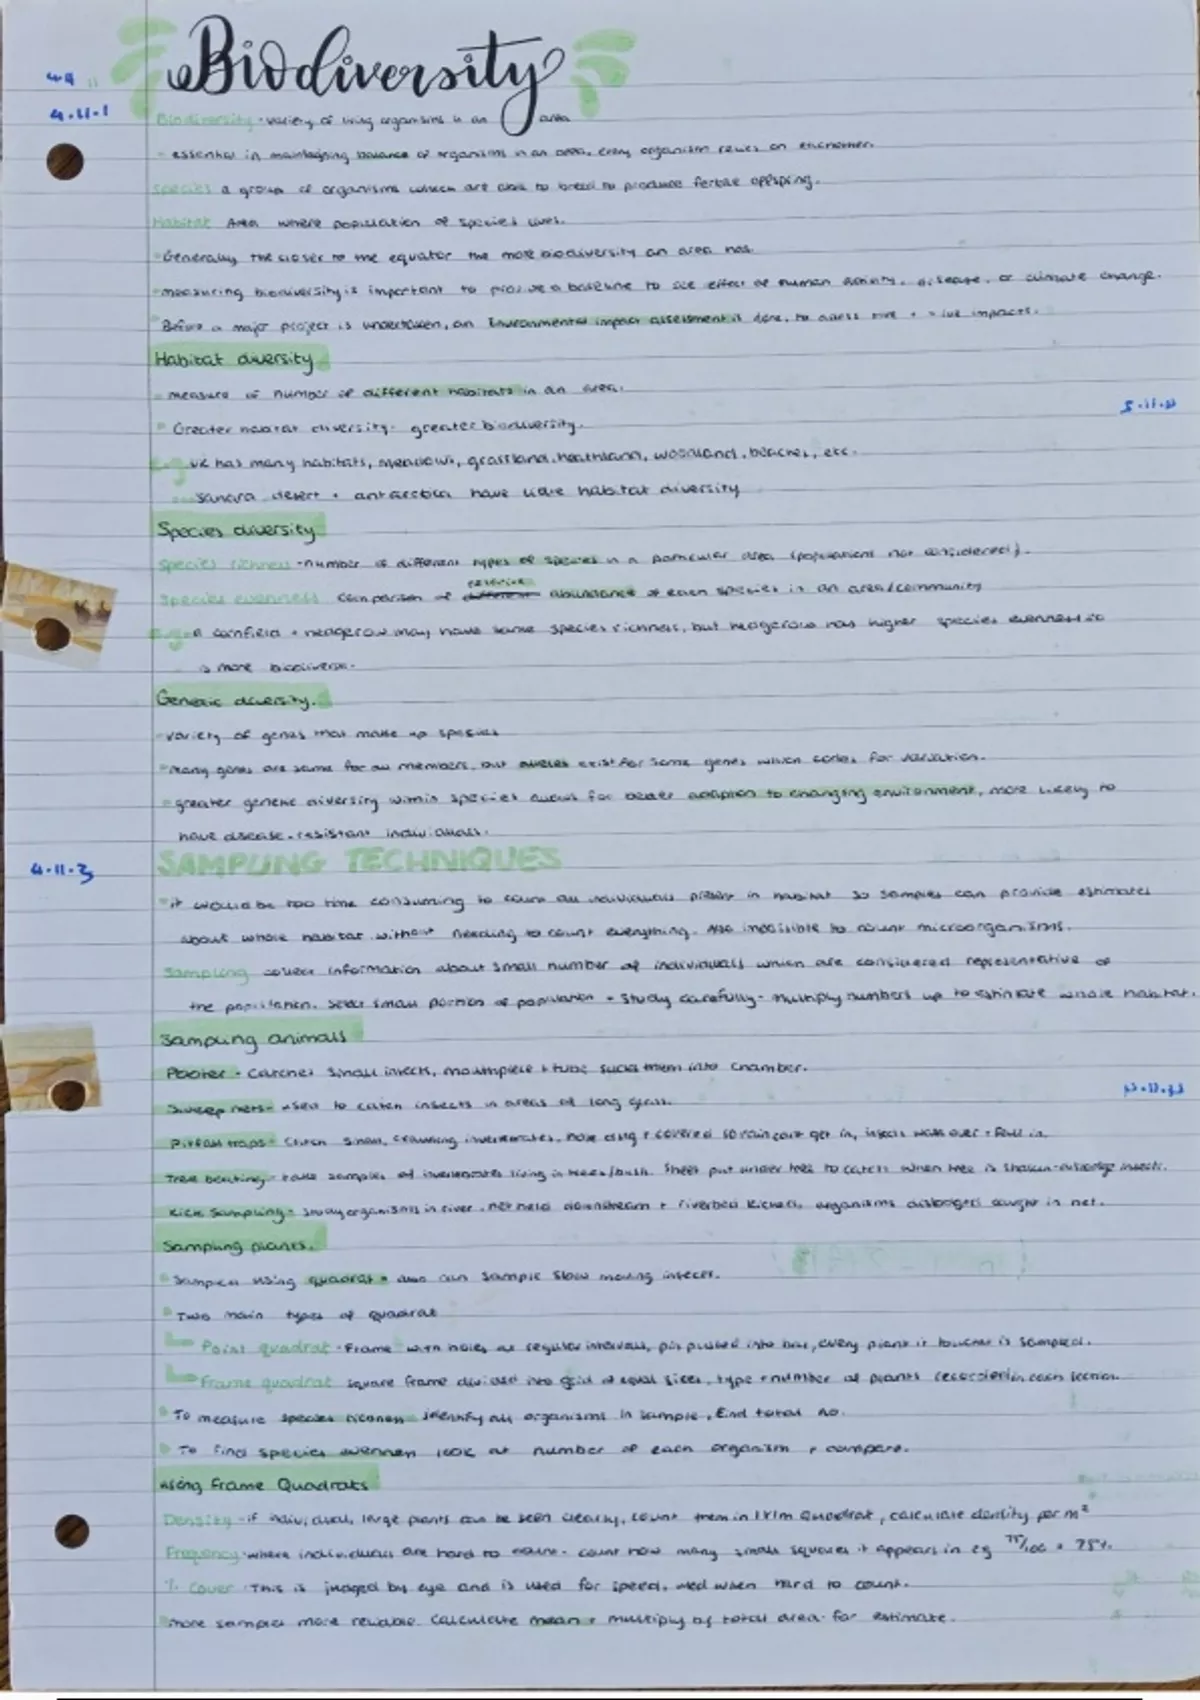 Biodiversity
4.11.1
Biodiversity - variety of living organisms in an area
- essential in maintaining balance of organisms in an area, every organism relies on
Species a group of organisms which are able to breed to produce fertile offspring.
Habitat Area where population of species lives.
Generally the closer to the equator the more biodiversity an area has.
measuring biodiversity is important to provide a baseline to see effect of human activity, disease, or climate change.
Before a major project is undertaken, an Environmental impact assessment is done, to assess +ive + -ive impacts.
Habitat diversity
- measure of number of different habitats in an area.
5.11.
Greater habitat diversity - greater biodiversity.
e.g. UK has many habitats, meadows, grassland, heathland, woodland, beaches, etc.
Sahara desert + antarctica have little habitat diversity
Species diversity
Species richness - number of different types of species in a particular area (populations not considered).
relative
Species evenness comparison of abundance of each species in an area/community
e.g. A cornfield + hedgerow may have same species richness, but hedgerow has higher species evenness so
is more biodiverse.
Genetic diversity.
- variety of genes that make up species
many genes are same for all members, but alleles exist for some genes which codes for variation.
greater genetic diversity within species allows for better adaption to changing environment, more likely to
have disease-resistant individuals.
4.11.3
SAMPLING TECHNIQUES
it would be too time consuming to count all individuals present in habitat so samples can provide estimates
about whole habitat without needing to count everything. Also impossible to count microorganisms.
Sampling collect information about small number of individuals which are considered representative of
the population. Select small portion of population - study carefully - multiply numbers up to estimate whole habitat.
Sampling animals
Pooter - catches small insects, mouthpiece + tube sucks them into chamber.
Sweep nets - used to catch insects in areas of long grass.
Pitfall traps - catch small, crawling invertebrates, hole dug + covered so rain can't get in, insects walk over + fall in.
Tree beating - take samples of invertebrates living in trees/bush. Sheet put under tree to catch when tree is shaken - dislodge insects.
Kick sampling - study organisms in river, net held downstream + riverbed kicked, organisms dislodged caught in net.
Sampling plants.
Sampled using quadrat - also can sample slow moving insects.
Two main types of quadrat
Point quadrat - Frame with holes at regular intervals, pin pushed into hole, every plant it touches is sampled.
Frame quadrat square frame divided into grid of equal sizes, type + number of plants recorded in each section.
To measure species richness identify all organisms in sample, find total no.
To find species evenness look at number of each organism + compare.
using Frame Quadrats
Density - if individual, large plants can be seen clearly, count them in 1x1m Quadrat, calculate density per m²
Frequency - where individuals are hard to count - count how many small squares it appears in eg 75/100 = 75%.
% Cover This is judged by eye and is used for speed, used when hard to count.
more samples more reliable. Calculate mean + multiply by total area for estimate.